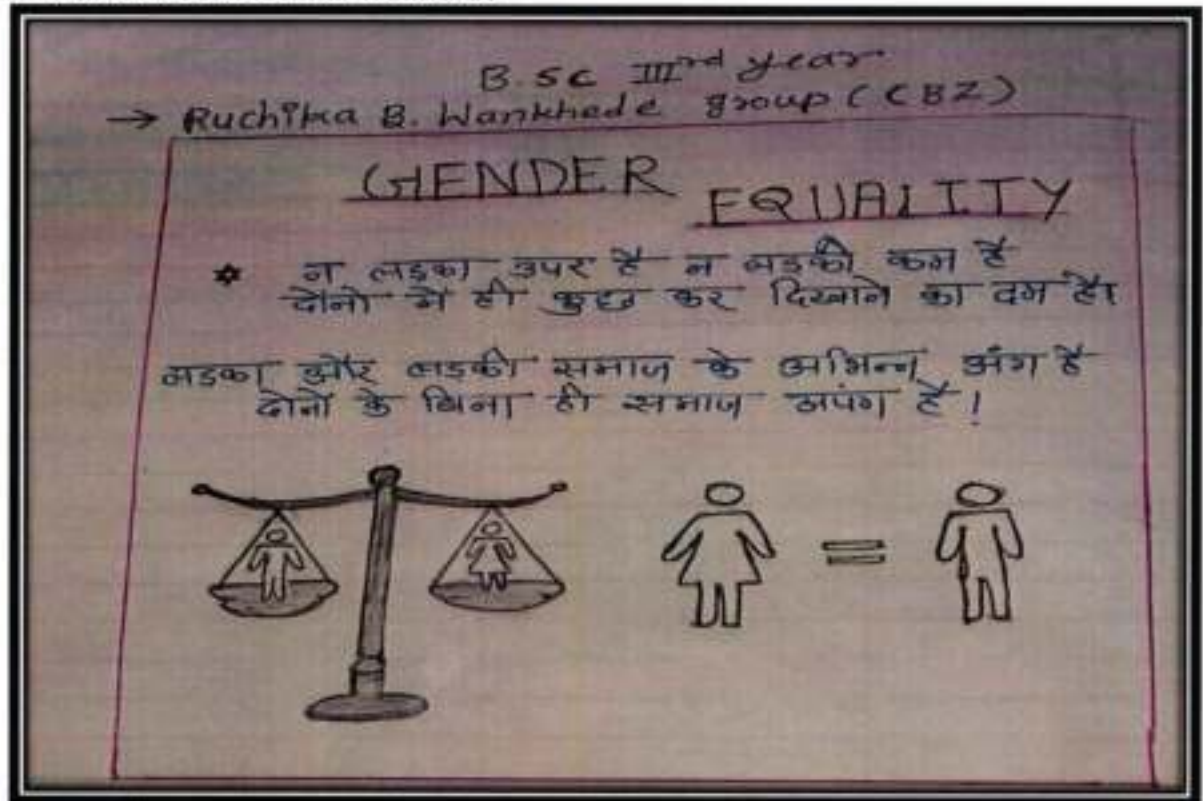 B.Sc IIIrd year
→ Ruchika B. Wankhede group (CBZ)
GENDER EQUALITY
* न लडका उपर है न लडकी कम है
दोनो मे ही कुछ कर दिखाने का दम है।
लडका और लडकी समाज के अभिन्न अंग है
दोनो के बिना ही समाज अपंग है!
=